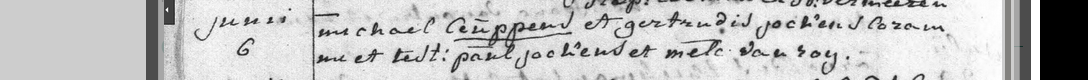 junii michael Ceuppens et gertrudis jochens coram
6 me et test: paul jochens et melc van roy.